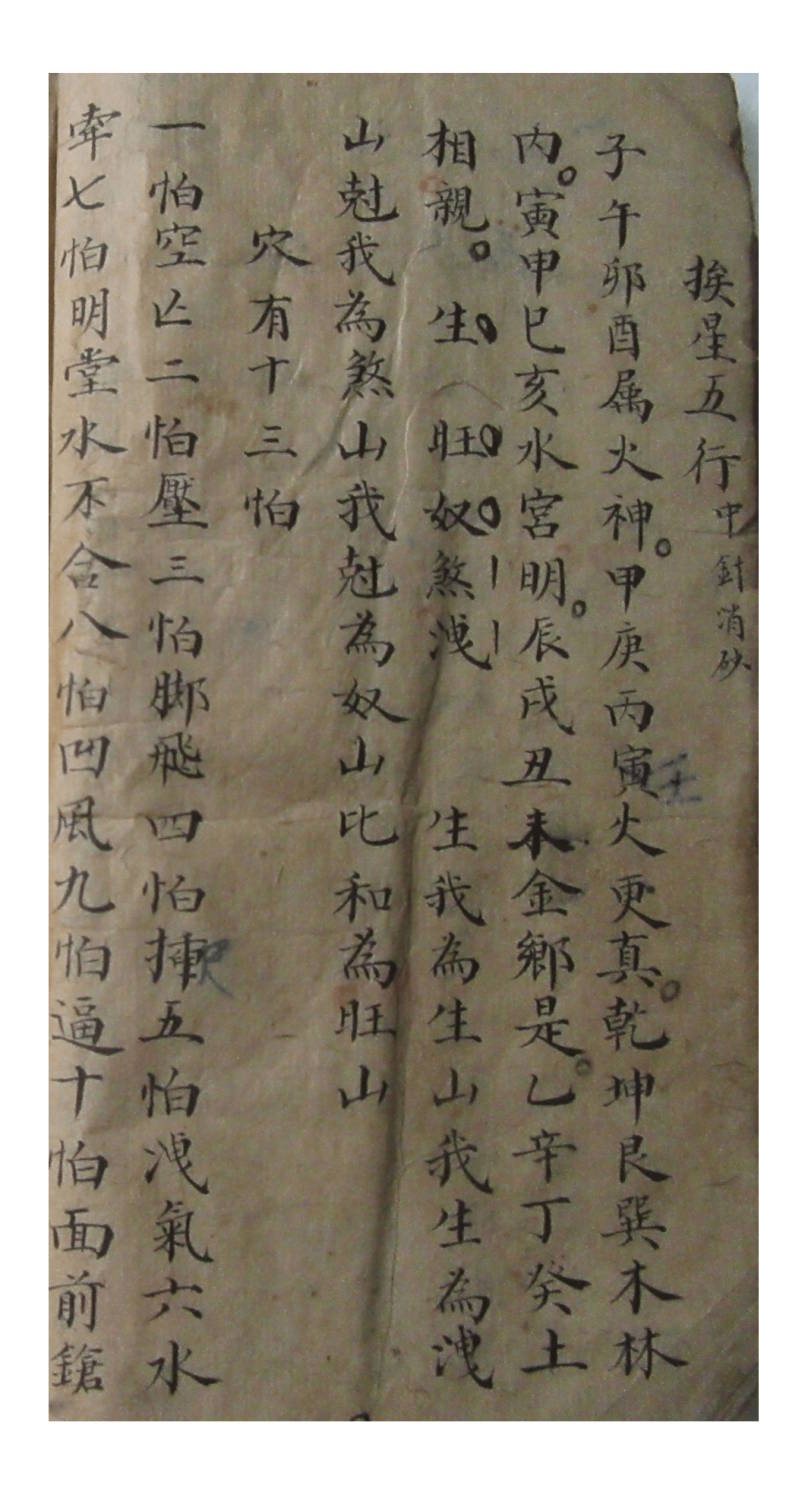 挨星五行中針消砂
子午卯酉属火神。甲庚丙寅火更真。乾坤艮巽木林
内。寅申巳亥水宮明。辰戌丑未金鄉是。乙辛丁癸土
相親。生旺奴煞洩 生我為生山我生為洩
山尅我為煞山我尅為奴山比和為旺山
穴有十三怕
一怕空亾二怕壓三怕脚飛四怕捶五怕洩氣六水
牽七怕明堂水不合八怕凹風九怕逼十怕面前鎗